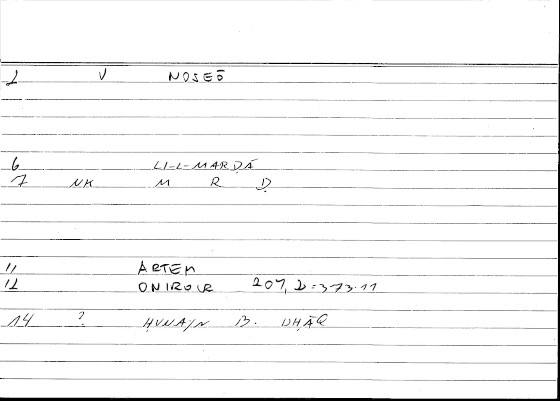 2 V NOSEŌ
6 LI-L-MARḌĀ
7 NK M R Ḍ
11 ARTEM
12 ONIROCR 207, 2 = 373.11
14 ? ḤUNAYN B. ISḤĀQ